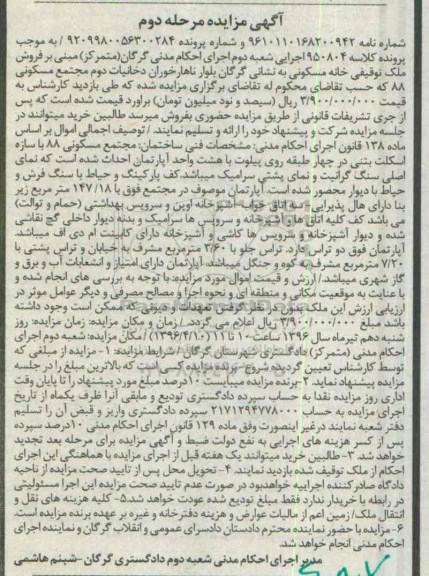 آگهی مزایده مرحله دوم
شماره نامه ۹۶۱۰۱۱۰۱۶۸۲۰۰۹۴۲ و شماره پرونده ۹۲۰۹۹۸۰۰۵۶۳۰۰۲۸۴ / به موجب
پرونده کلاسه ۹۵۰۸۰۴ اجرایی شعبه دوم اجرای احکام مدنی گرگان(متمرکز) مبنی بر فروش
ملک توقیفی خانه مسکونی به نشانی گرگان بلوار ناهارخوران دخانیات دوم مجتمع مسکونی
۸۸ که حسب تقاضای محکوم له تقاضای برگزاری مزایده شده که طی بازدید کارشناس به
قیمت ۳/۹۰۰/۰۰۰/۰۰۰ ریال (سیصد و نود میلیون تومان) برآورد قیمت شده است که پس
از جری تشریفات قانونی از طریق مزایده حضوری بفروش میرسد طالبین خرید میتوانند در
جلسه مزایده شرکت و پیشنهاد خود را ارائه و تسلیم نمایند. / توصیف اجمالی اموال بر اساس
ماده ۱۳۸ قانون اجرای احکام مدنی: مشخصات فنی ساختمان: مجتمع مسکونی ۸۸ با سازه
اسکلت بتنی در چهار طبقه روی پیلوت با هشت واحد آپارتمان احداث شده است که نمای
اصلی سنگ گرانیت و نمای پشتی سرامیک میباشد. کف پارکینگ و حیاط با سنگ فرش و
حیاط با دیوار محصور شده است. آپارتمان موصوف در مجتمع فوق با ۱۴۷/۱۸ متر مربع زیر
بنا دارای هال پذیرایی- سه اتاق خواب- آشپزخانه اوپن و سرویس بهداشتی (حمام و توالت)
می باشد کف کلیه اتاق ها و آشپزخانه و سرویس ها سرامیک و بدنه دیوار داخلی گچ نقاشی
شده و دیوار آشپزخانه و سرویس ها کاشی و آشپزخانه دارای کابینت ام دی اف میباشد.
آپارتمان فوق دو تراس دارد. تراس جلو با ۳/۶۰ مترمربع مشرف به خیابان و تراس پشتی با
۷/۲۰ مترمربع مشرف به کوه و جنگل میباشد. آپارتمان دارای امتیاز و انشعابات آب و برق و
گاز شهری میباشد./ ارزش و قیمت اموال مورد مزایده: با توجه به بررسی های انجام شده و
با عنایت به موقعیت مکانی و منطقه ای و نحوه اجرا و مصالح مصرفی و دیگر عوامل موثر در
ارزیابی ارزش این ملک بدون در نظر گرفتن تعهدات و دیونی که ممکن است وجود داشته
باشد مبلغ ۳/۹۰۰/۰۰۰/۰۰۰ ریال اعلام می گردد. / زمان و مکان مزایده: زمان مزایده: روز
شنبه دهم تیرماه سال ۱۳۹۶ ساعت ۱۰ تا ۱۱ (۱۳۹۶/۴/۱۰) / مکان مزایده: شعبه دوم اجرای
احکام مدنی (متمرکز) دادگستری شهرستان گرگان / شرایط مزایده: ۱- مزایده از مبلغی که
توسط کارشناس تعیین گردیده شروع- برنده مزایده کسی است که بالاترین مبلغ را در جلسه
مزایده پیشنهاد نماید. ۲-برنده مزایده میبایست ۱۰درصد مبلغ مورد پیشنهاد را تا پایان وقت
اداری روز مزایده نقدا به حساب سپرده دادگستری تودیع و مابقی آنرا ظرف یکماه از تاریخ
اجرای مزایده به حساب ۲۱۷۱۲۹۴۷۷۸۰۰۰ سپرده دادگستری واریز و قبض آن را تسلیم
دفتر شعبه نمایند درغیر اینصورت وفق ماده ۱۲۹ قانون اجرای احکام مدنی ۱۰درصد سپرده
پس از کسر هزینه های اجرایی به نفع دولت ضبط و آگهی مزایده برای مرحله بعد تجدید
خواهد شد. ۳-طالبین خرید میتوانند یک هفته قبل از اجرای مزایده با هماهنگی این اجرای
احکام از ملک توقیف شده بازدید نمایند. ۴-تحویل محل پس از تایید صحت مزایده از ناحیه
دادگاه صادرکننده اجراییه خواهدبود در صورت عدم تایید صحت مزایده این اجرا مسئولیتی
در رابطه با خریدار ندارد فقط مبلغ تودیع شده عودت خواهد شد. ۵- کلیه هزینه های نقل و
انتقال ملک/ زمین اعم از مالیات عوارض و هزینه دفترخانه و غیره بر عهده برنده مزایده است.
۶-مزایده با حضور نماینده محترم دادستان دادسرای عمومی و انقلاب گرگان و نماینده اجرای
احکام مدنی انجام خواهد شد.
مدیر اجرای احکام مدنی شعبه دوم دادگستری گرگان - شبنم هاشمی